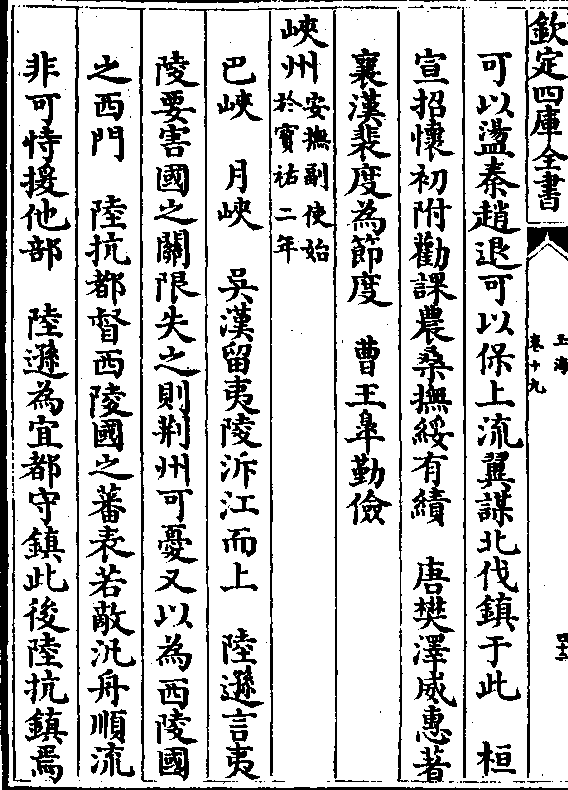 欽定四庫全書
玉海
卷十九
可以盪秦趙退可以保上流翼謀北伐鎮于此　桓
宣招懷初附勸課農桑撫綏有績　唐樊澤威惠著
襄漢裴度為節度　曹王臯勤儉
峽州安撫副使始
於寶祐二年
巴峽　月峽　吳漢留夷陵泝江而上　陸遜言夷
陵要害國之關限失之則荆州可憂又以為西陵國
之西門　陸抗都督西陵國之蕃表若敵汎舟順流
非可恃援他部　陸遜為宜都守鎮此後陸抗鎮焉